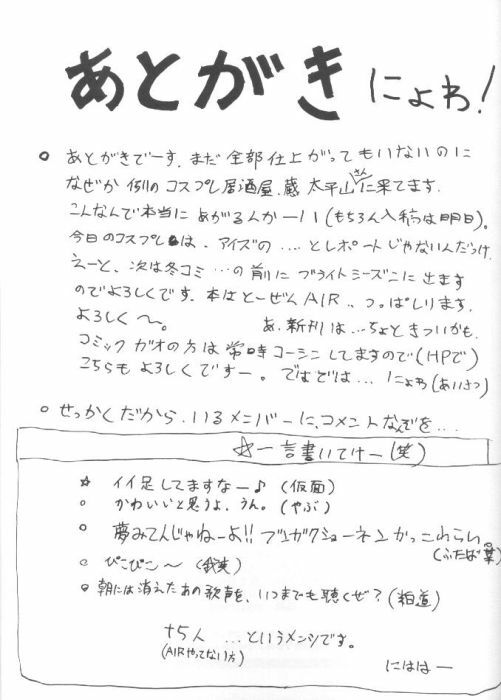 あとがき にょわ!
○ あとがきでーす。まだ全部仕上がってもいないのに
なぜか例のコスプレ居酒屋、蔵太平山さんに来てます。
こんなんで本当にあがるんかーい(もちろん入稿は明日)。
今日のコスプレは、アイズの…とレポートじゃないんだっけ。
えーと、次は冬コミ…の前にブライトシーズンに出ます
のでよろしくです。本はとーぜんAIR。つっぱしります。
よろしく〜。 あ、新刊は…ちょときついかも。
コミックガオの方は常時コーシンしてますので(HPで)
こちらもよろしくですー。ではでは…にょわ(あいさつ)
○ せっかくだから、いるメンバーに、コメントなんぞを…。
☆一言書いてけー(笑)
☆ イイ足してますなー♪(仮面)
○ かわいいと思うよ、うん。(やぶ)
○ 夢みてんじゃねーよ!!ブンガクショーネン
(ふたば葉)
○ ぴこぴこ〜
○ 朝には消えたあの歌声を、いつまでも聴くぜ?(粕道)
+5人 …というメンツです。
(AIRやってない方)
にははー